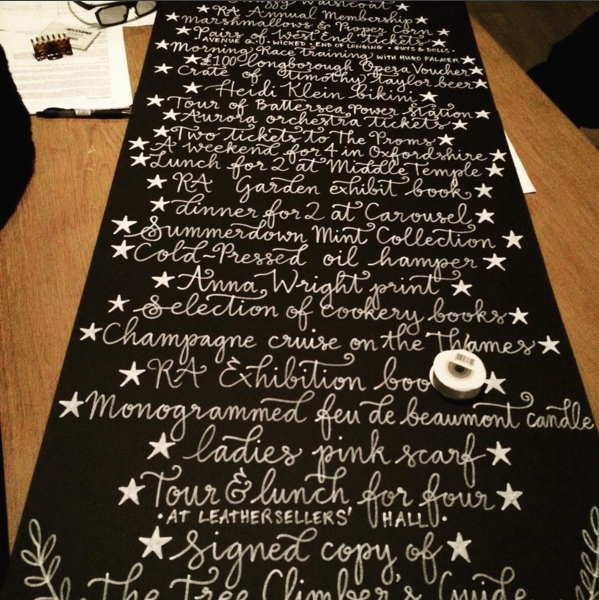 Waistcoat
RA Annual Membership
Marshmallows & Proper Corn
Pairs of West End tickets
AVENUE Q · WICKED · END OF LONGING · GUYS & DOLLS ·
Morning Race training WITH HUGO PALMER
£100 Longborough Opera Voucher
Crate of Timothy Taylor beer
Heidi Klein Bikini
Tour of Battersea Power Station
Aurora orchestra tickets
Two tickets to The Proms
A weekend for 4 in Oxfordshire
Lunch for 2 at Middle Temple
RA Garden exhibit book
dinner for 2 at Carousel
Summerdown Mint Collection
Cold-Pressed oil hamper
Anna Wright print
Selection of cookery books
Champagne cruise on the Thames
RA Exhibition boo
Monogrammed feu de beaumont candle
ladies pink scarf
Tour & lunch for four
· AT LEATHERSELLERS' HALL ·
signed copy of
The Tree Climber's Guide